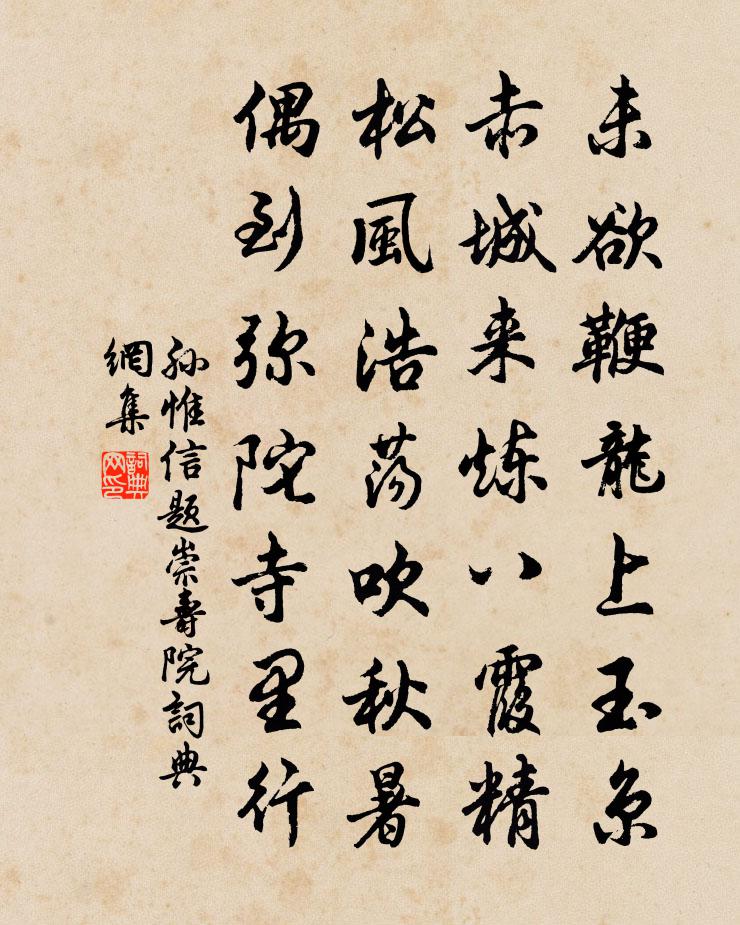 未欲鞭龍上玉京
赤城来炼八霞精
松風浩荡吹秋暑
偶到弥陀寺里行
孙惟信題崇壽院詞典
網集
詞典
网印